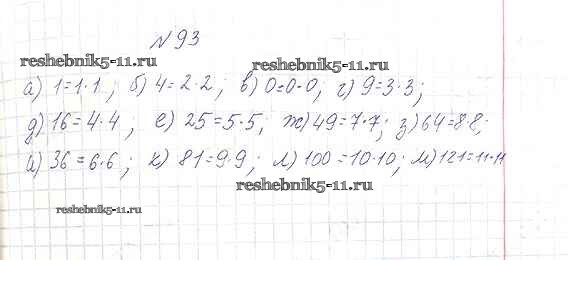 №93
reshebnik5-11.ru reshebnik5-11.ru
а) 1=1·1; б) 4=2·2; в) 0=0·0; г) 9=3·3;
д) 16=4·4; е) 25=5·5; ж) 49=7·7; з) 64=8·8;
и) 36=6·6; к) 81=9·9; л) 100=10·10; м) 121=11·11
reshebnik5-11.ru
reshebnik5-11.ru